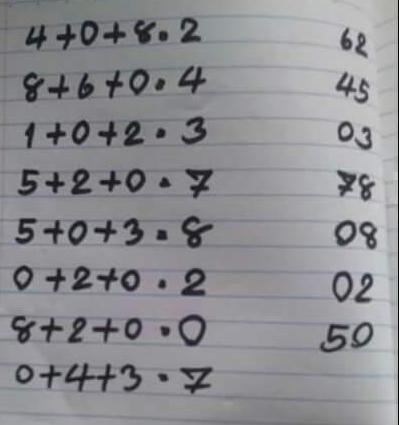 4+0+8.2 62
8+6+0.4 45
1+0+2.3 03
5+2+0.7 78
5+0+3.8 08
0+2+0.2 02
8+2+0.0 50
0+4+3.7